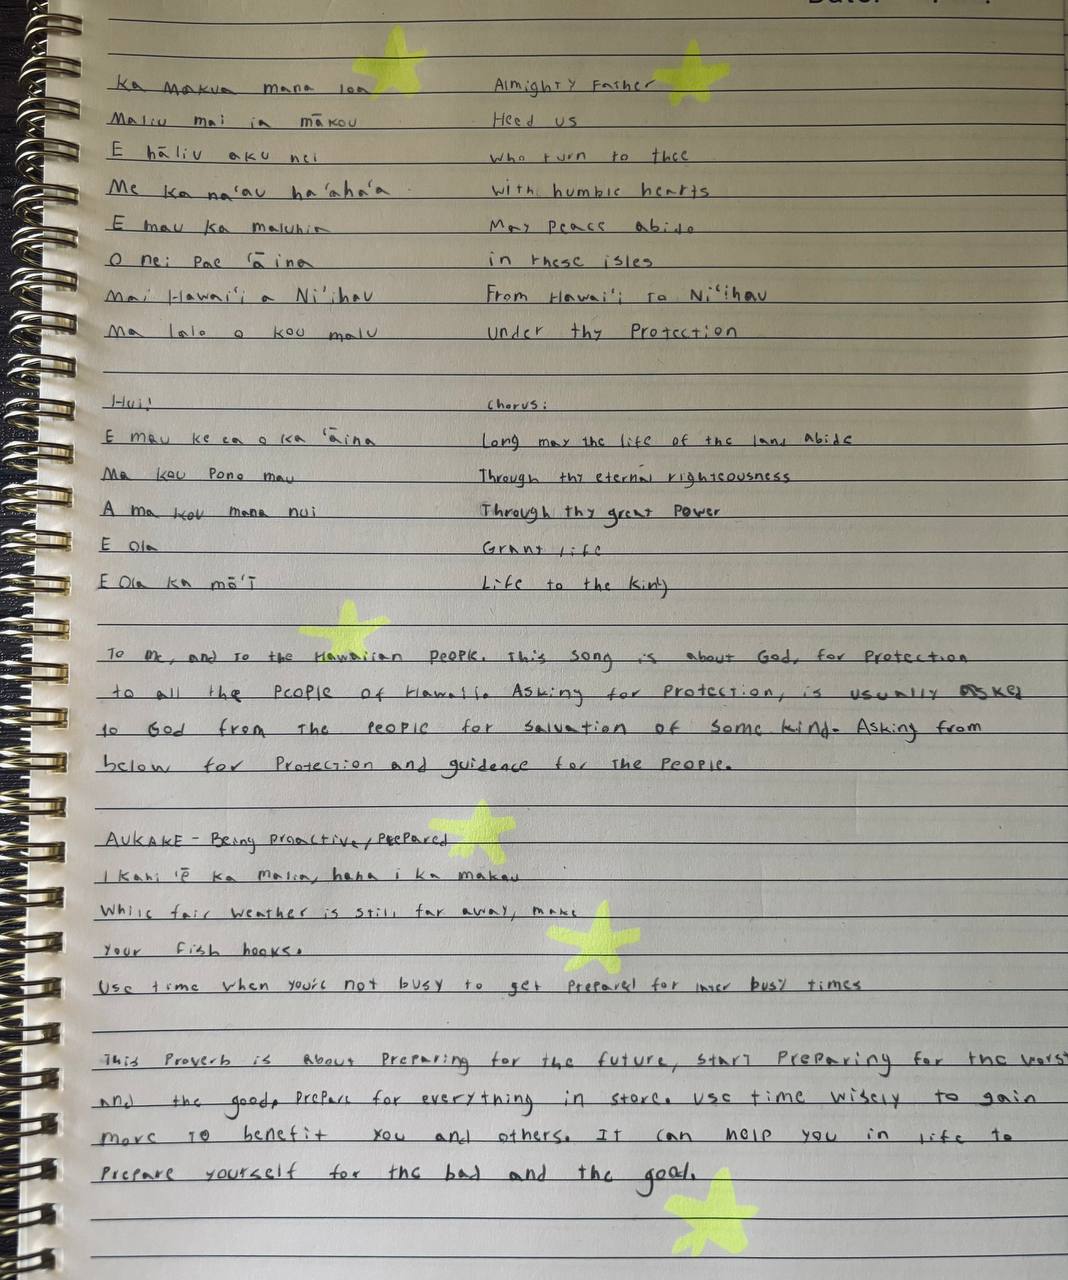 Date:
Ka Makua mana loa Almighty Father
Maliu mai ia mākou Heed us
E hāliu aku nei who turn to thee
Me ka na'au ha'aha'a with humble hearts
E mau ka maluhia May peace abide
O nei pae 'āina in these isles
Mai Hawai'i a Ni'ihau From Hawai'i to Ni'ihau
Ma lalo o kou malu under thy Protection
Hui! Chorus:
E mau ke ea o ka 'āina Long may the life of the land abide
Ma kou Pono mau Through thy eternal righteousness
A ma kou mana nui Through thy great Power
E Ola Grant life
E Ola ka mō'ī Life to the King
To me, and to the Hawaiian people. This song is about God, for Protection
to all the People of Hawai'i. Asking for Protection, is usually asked
to God from the People for salvation of some kind. Asking from
below for Protection and guidence for the People.
AUKAKE - Being proactive, prepared
I Kahi 'ē ka malia, hana i ka makau
While fair weather is still far away, make
your fish hooks.
Use time when you're not busy to get prepared for later busy times
This Proverb is about Preparing for the future, start Preparing for the worst
and the good, Prepare for everything in store. Use time wisely to gain
more to benefit you and others. It can help you in life to
Prepare yourself for the bad and the good.